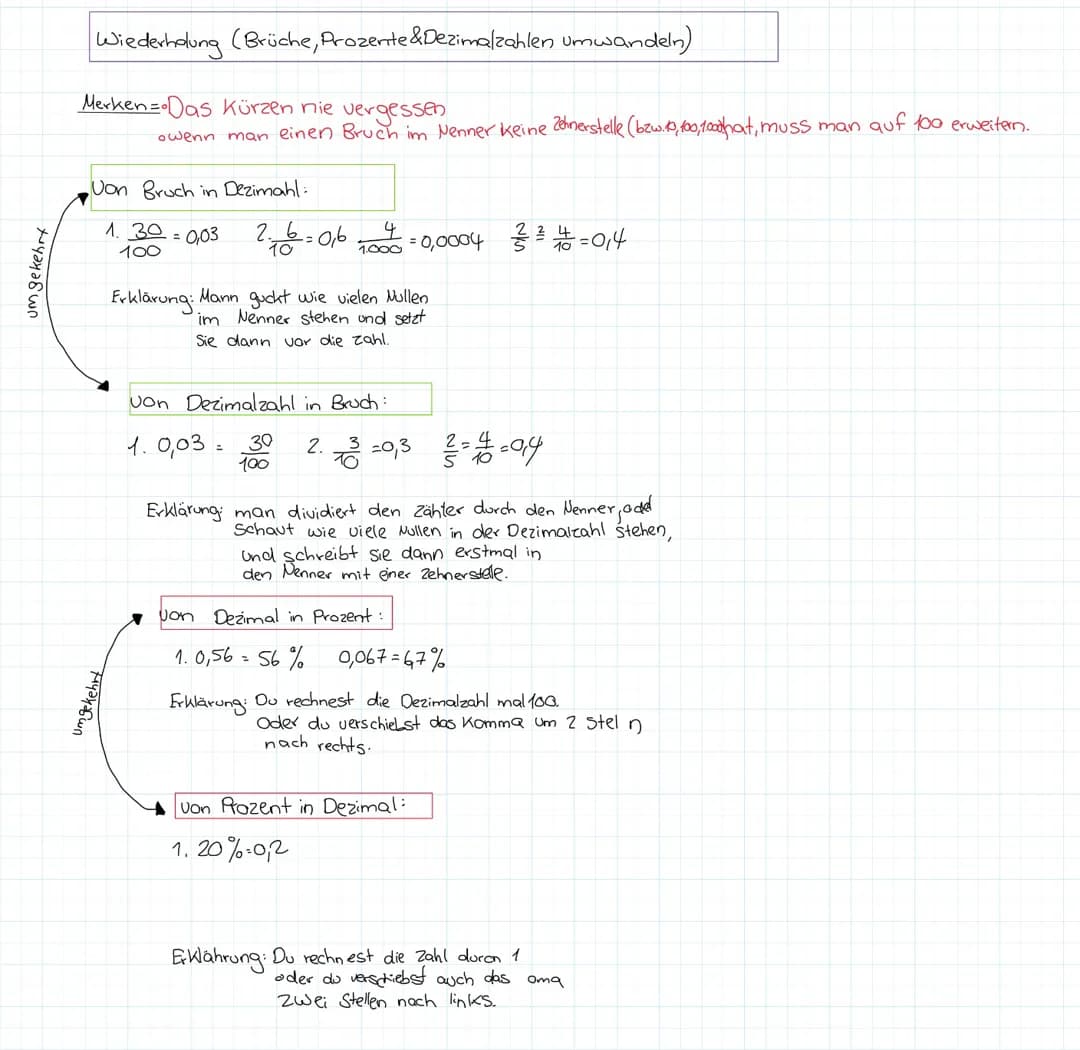 Wiederholung (Brüche, Prozente & Dezimalzahlen umwandeln)
Merken = • Das Kürzen nie vergessen
• wenn man einen Bruch im Nenner keine Zehnerstelle (bzw. 10, 100, 1000) hat, muss man auf 100 erweitern.
umgekehrt
Von Bruch in Dezimahl:
1. 30/100 = 0,03 2. 6/10 = 0,6 4/1.000 = 0,0004 2/5 2= 4/10 = 0,4
Erklärung: Mann guckt wie vielen Nullen
im Nenner stehen und setzt
Sie dann vor die Zahl.
von Dezimalzahl in Bruch:
1. 0,03 = 30/100 2. 3/10 = 0,3 2/5 = 4/10 = 0,4
Erklärung: man dividiert den Zähler durch den Nenner,
Schaut wie viele Nullen in der Dezimalzahl stehen,
und schreibt sie dann erstmal in
den Nenner mit einer Zehnerstelle.
umgekehrt
von Dezimal in Prozent:
1. 0,56 = 56 % 0,067 = 67 %
Erklärung: Du rechnest die Dezimalzahl mal 100.
Oder du verschiebst das Komma um 2 Stel n
nach rechts.
von Prozent in Dezimal:
1. 20 % = 0,2
Erklährung: Du rechnest die Zahl durch 1
oder du verschiebst auch das oma
zwei Stellen nach links.